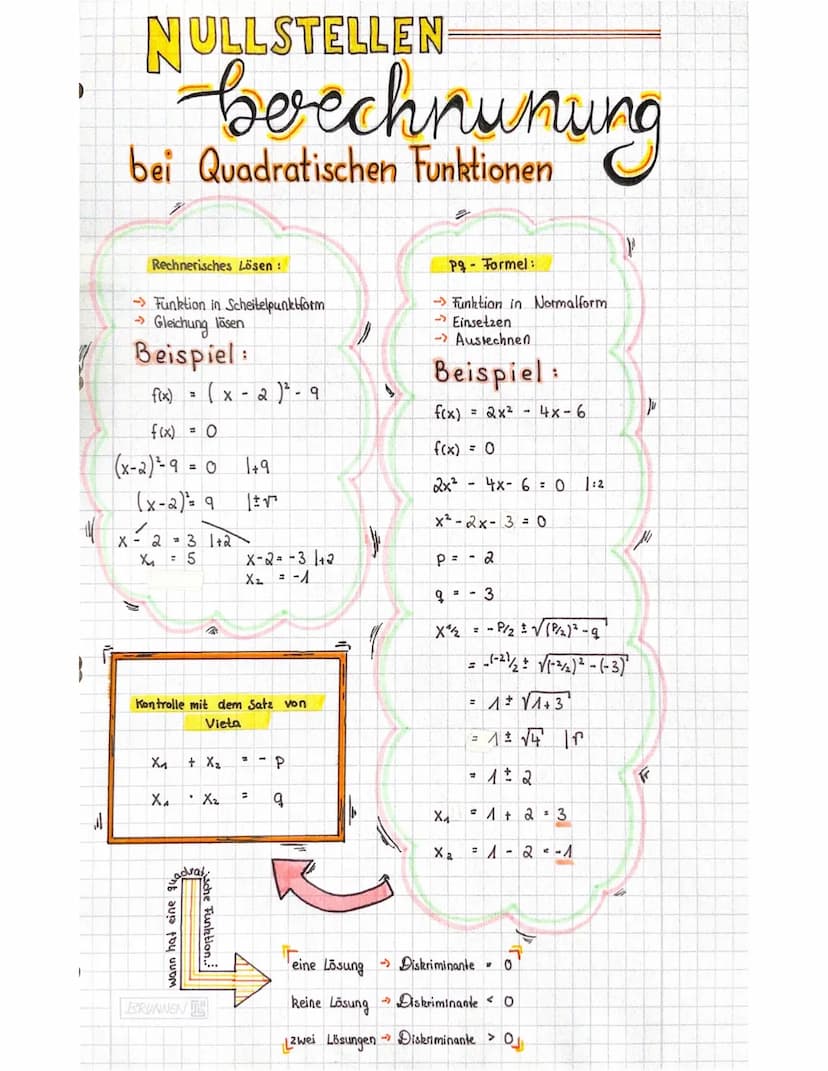 NULLSTELLEN
berechnunung
bei Quadratischen Funktionen
Rechnerisches Lösen:
→ Funktion in Scheitelpunktform
→ Gleichung lösen
Beispiel:
f(x) = (x - 2)² - 9
f(x) = 0
(x-2)² - 9 = 0 |+9
(x-2)² = 9 |±√
x - 2 = 3 |+2
x₁ = 5
x-2 = -3 |+2
x₂ = -1
pq - Formel:
→ Funktion in Normalform
→ Einsetzen
→ Ausrechnen
Beispiel:
f(x) = 2x² - 4x - 6
f(x) = 0
2x² - 4x - 6 = 0 |:2
x² - 2x - 3 = 0
p = - 2
q = - 3
x1/2 = -P/2 ± √(P/2)² - q
= -(-2)/2 ± √(-2/2)² - (-3)
= 1 ± √1+3
= 1 ± √4 |√
= 1 ± 2
x₁ = 1 + 2 = 3
x₂ = 1 - 2 = -1
Kontrolle mit dem Satz von
Vieta
x₁ + x₂ = - p
x₁ · x₂ = q
wann hat eine quadratische Funktion...
eine Lösung → Diskriminante = 0
keine Lösung → Diskriminante < 0
zwei Lösungen → Diskriminante > 0
BRUNNEN